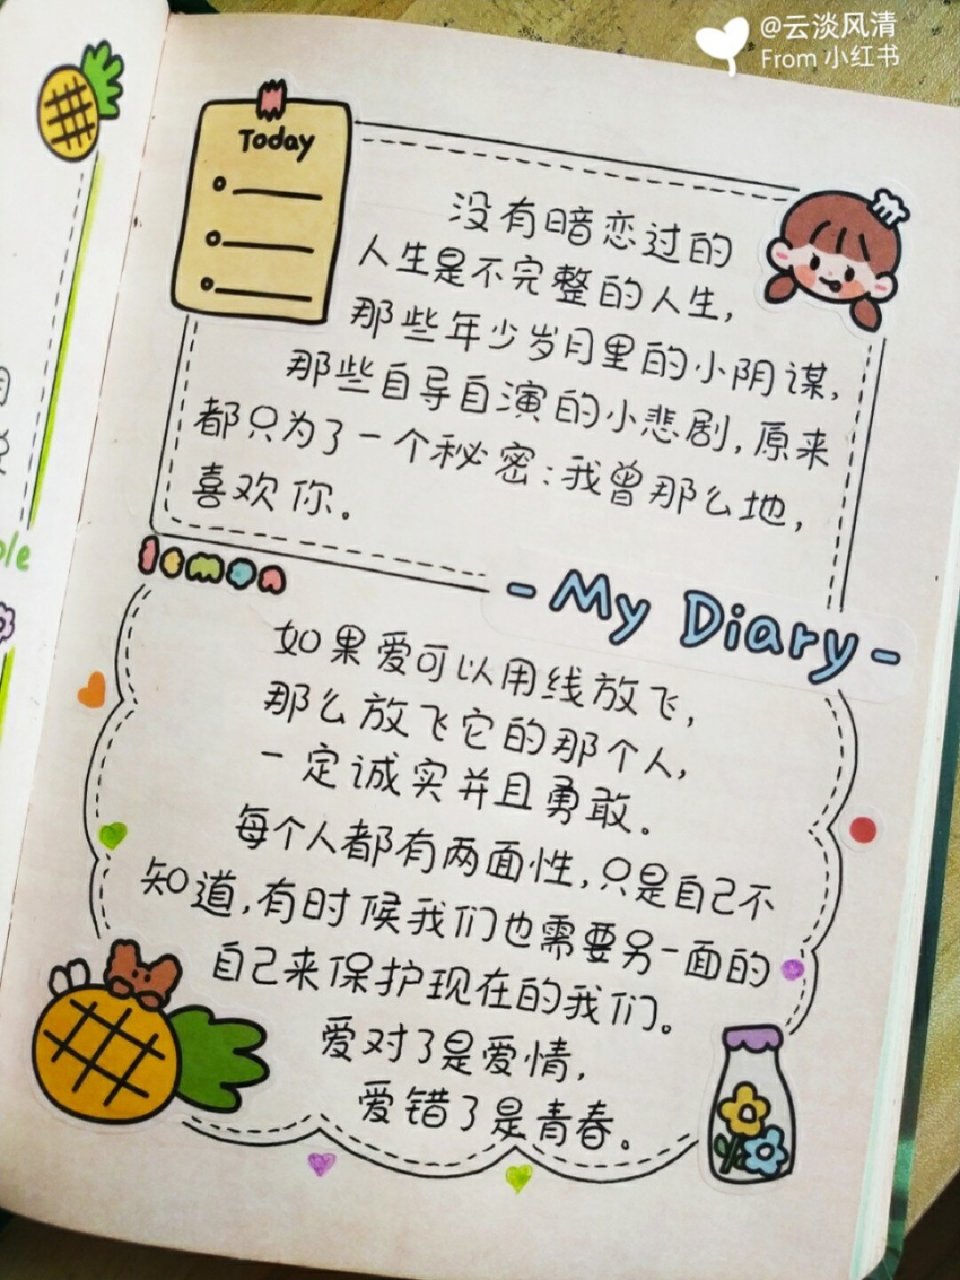 @云淡风清
From 小红书
Today
没有暗恋过的
人生是不完整的人生,
那些年少岁月里的小阴谋,
那些自导自演的小悲剧,原来
都只为了一个秘密:我曾那么地,
喜欢你.
lemon
- My Diary -
如果爱可以用线放飞,
那么放飞它的那个人,
一定诚实并且勇敢.
每个人都有两面性,只是自己不
知道,有时候我们也需要另一面的
自己来保护现在的我们。
爱对了是爱情,
爱错了是青春。